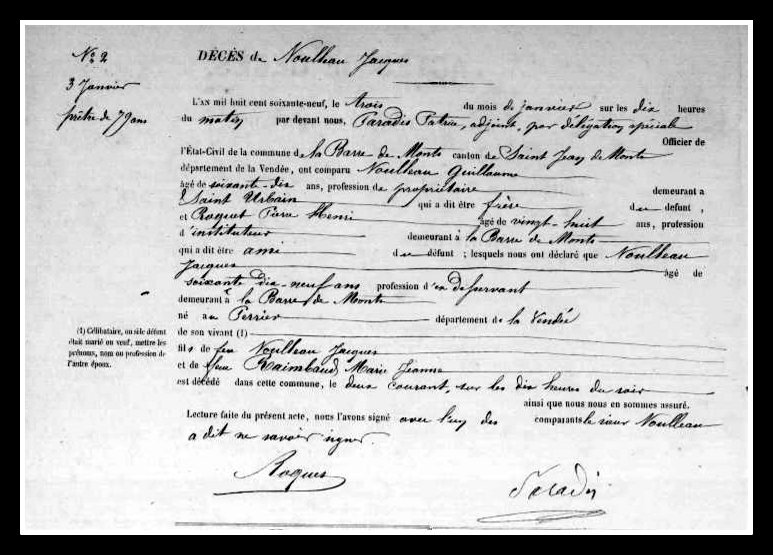 No 2
3 Janvier
prêtre de 79 ans
DÉCÈS de Noulleau Jacques
L'AN mil huit cent soixante-neuf, le trois du mois de janvier sur les dix heures
du matin par devant nous, Paradis Patrice, adjoint, par délégation spéciale
Officier de
l'État-Civil de la commune de la Barre de Monts canton de Saint Jean de Monts
département de la Vendée, ont comparu Noulleau Guillaume
âgé de soixante-dix ans, profession de propriétaire demeurant a
Saint Urbain qui a dit être frère du defunt ,
et Roques Pierre Henri âgé de vingt-huit ans, profession
d'instituteur demeurant à la Barre de Monts
qui a dit être ami du défunt ; lesquels nous ont déclaré que Noulleau
Jacques âgé de
soixante dix-neuf ans profession d'ex desservant
demeurant à la Barre de Monts
né au Perrier département de la Vendée
de son vivant (1)
fils de feu Noulleau Jacques
et de feu Raimbaud Marie Jeanne
est décédé dans cette commune, le deux courant, sur les dix heures du soir
ainsi que nous nous en sommes assuré.
Lecture faite du présent acte, nous l'avons signé avec l'un des comparants le sieur Noulleau
a dit ne savoir signer.
(1) Célibataire, ou si le défunt
était marié ou veuf, mettre les
prénoms, nom ou profession de
l'autre époux.
Roques
Paradis